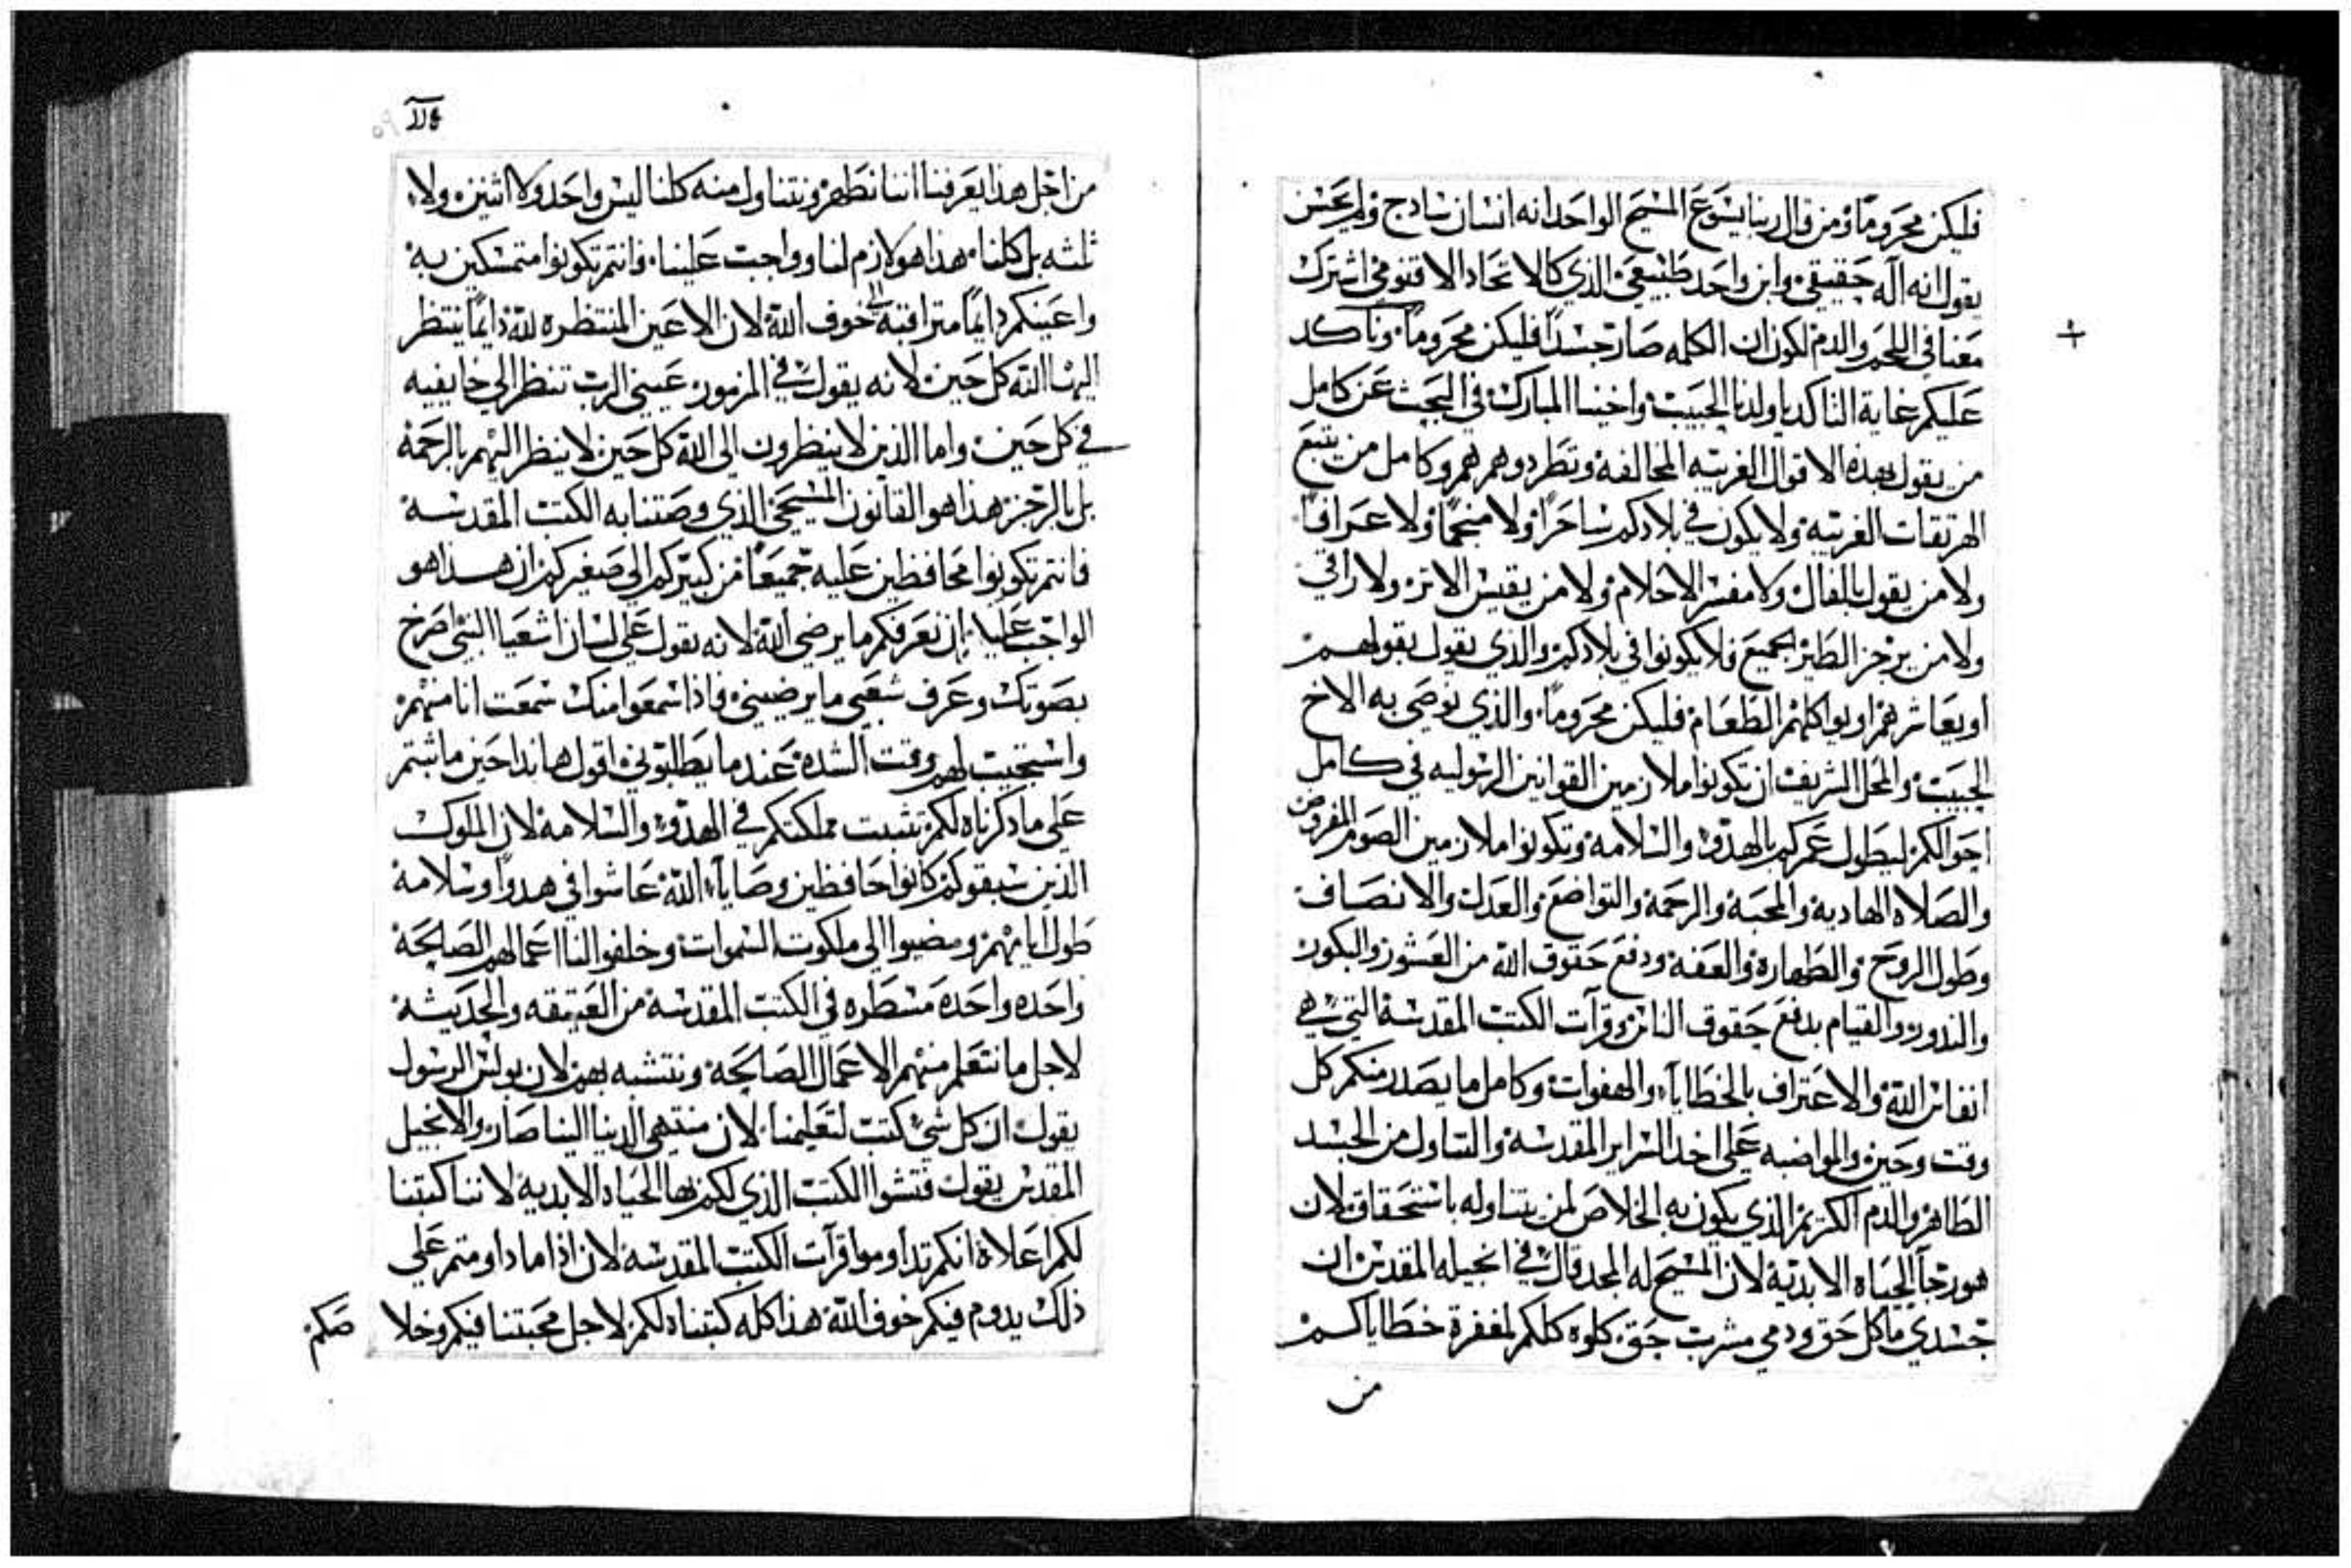 فليكن محروماً ومن قال ربنا يسوع المسيح الواحد انه انسان سادج ولم يحسن
يقول انه اله حقيقي وابن واحد طبيعي الذي كالاتحاد الاقنومي اشترك
معنا في اللحم والدم لكون ان الكلمه صار جسداً فليكن محروماً وناكد
عليكم غاية التاكد ياولدنا الحبيب واخينا المبارك في البحث عن كامل
من يقول بهذه الاقوال الغريبه المخالفه وتطردوهم هم وكامل من يتبع
الهرتقات الغريبه ولا يكون في بلادكم ساحراً ولا منجماً ولا عرافاً
ولا من يقول بالفال ولا مفسر الاحلام ولا من يقيس الاتر ولا راقي
ولا من يزجر الطير الجميع فلا يكونوا في بلادكم والذي يقول بقولهم
او يعاشرهم او يواكلهم الطعام فليكن محروماً والذي نوصي به الاخ
الحبيب والمحل الشريف ان تكونوا ملازمين القوانين الرسوليه في كامل
احوالكم ليطول عمركم بالهدو والسلامه وتكونوا ملازمين الصوم المفروض
والصلاه الهاديه والمحبه والرحمه والتواضع والعدل والانصاف
وطول الروح والطهارة والعفه ودفع حقوق الله من العشور والبكور
والندور والقيام بدفع حقوق الناس وقرآت الكتب المقدسة التي هي
انفاس الله والاعتراف بالخطايا والهفوات وكامل ما يصدر منكم كل
وقت وحين والمواضبه على اخد السراير المقدسه والتناول من الجسد
الطاهر والدم الكريم الذي يكون به الخلاص لمن يتناوله باستحقاق لان
هو رجا الحياه الابديه لان المسيح له المجد قال في انجيله المقدس ان
جسدي ماكل حق ودمي مشرب حق كلوه كلكم لمغفرة خطاياكم
من
من اجل هذا يعرفنا اننا نطهر ونتناول منه كلنا ليس واحد ولا اثنين ولا
ثلثه بل كلنا هذا هو لازم لنا وواجب علينا فانتم تكونوا متمسكين به
واعينكم دايماً متراقبه الى خوف الله لان الاعين المنتظره لله دايماً ينتظر
اليها الله كل حين لانه يقول في المزمور عيني الرب تنظر الي خايفيه
في كل حين واما الذين لا ينظرون الى الله كل حين لا ينظر اليهم بالرحمة
بل بالرجز هذا هو القانون المسيحي الذي وصتنا به الكتب المقدسه
فانتم تكونوا محافظين عليه جميعاً من كبيركم الي صغيركم ان هذا هو
الواجب علينا ان نعرفكم ما يرضي الله لانه يقول على لسان اشعيا النبي اصرخ
بصوتك وعرف شعبي ما يرضيني فاذا سمعوا منك سمعت انا منهم
واستجيب لهم وقت الشده عند ما يطلبوني اقول هانذا حين ما ثبتم
على ما دكرناه لكم تثبت مملكتكم في الهدو والسلامه لان الملوك
الذين سبقوكم كانوا حافظين وصايا الله عاشوا في هدوا وسلامه
طول ايامهم ومضيوا الى ملكوت السموات وخلفوا لنا اعمالهم الصالحة
واحده واحده مسطره في الكتب المقدسه من العتيقه والحديثه
لاجل ما نتعلم منهم الاعمال الصالحة ونتشبه بهم لان بولس الرسول
يقول ان كل شي كتب لتعليمنا لان منتهى الدنيا الينا صار والانجيل
المقدس يقول فتشوا الكتب الذي لكم بها الحياه الابديه لاننا كتبنا
لكم اعلاه انكم تداوموا قرآت الكتب المقدسه لان اذا ما داومتم علي
ذلك يدوم فيكم خوف الله هذا كله كتبناه لكم لاجل محبتنا فيكم وخلا
صكم